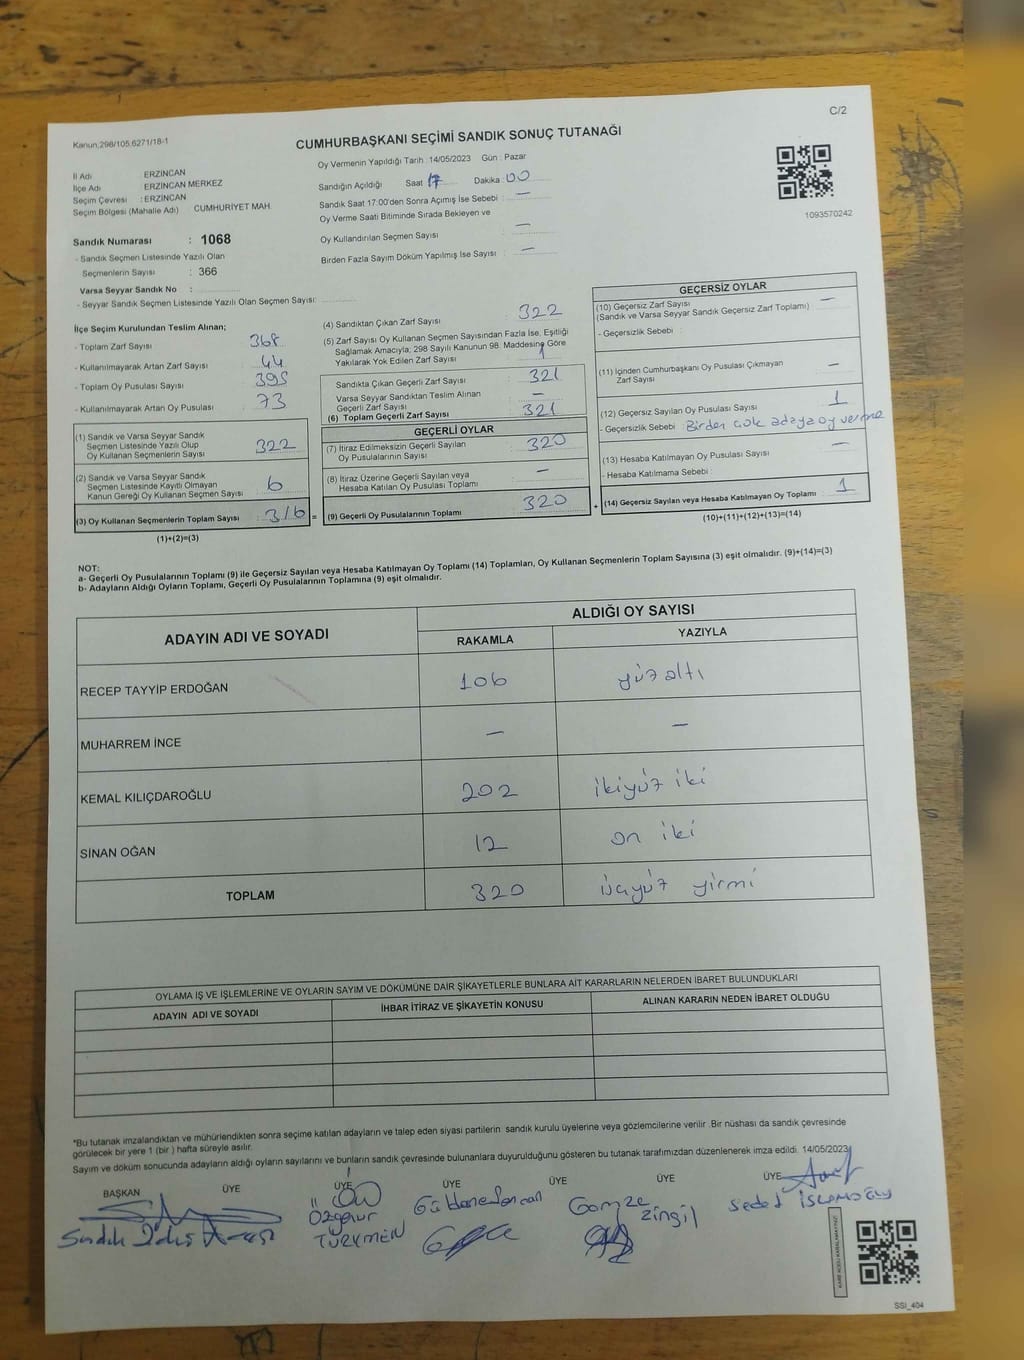 C/2
Kanun;298/105,6271/18-1
CUMHURBAŞKANI SEÇİMİ SANDIK SONUÇ TUTANAĞI
İl Adı ERZİNCAN
İlçe Adı : ERZİNCAN MERKEZ
Seçim Çevresi : ERZİNCAN
Seçim Bölgesi (Mahalle Adı) CUMHURİYET MAH.
Oy Vermenin Yapıldığı Tarih 14/05/2023 Gün : Pazar
Sandığın Açıldığı Saat 17 Dakika : 00
Sandık Saat 17:00'den Sonra Açımış İse Sebebi : —
Oy Verme Saati Bitiminde Sırada Bekleyen ve
Oy Kullandırılan Seçmen Sayısı —
Birden Fazla Sayım Döküm Yapılmış İse Sayısı : —
1093570242
Sandık Numarası : 1068
- Sandık Seçmen Listesinde Yazılı Olan
Seçmenlerin Sayısı : 366
Varsa Seyyar Sandık No :
- Seyyar Sandık Seçmen Listesinde Yazılı Olan Seçmen Sayısı:
İlçe Seçim Kurulundan Teslim Alınan;
- Toplam Zarf Sayısı 368
- Kullanılmayarak Artan Zarf Sayısı 44
- Toplam Oy Pusulası Sayısı 395
- Kullanılmayarak Artan Oy Pusulası 73
(1) Sandık ve Varsa Seyyar Sandık
Seçmen Listesinde Yazılı Olup
Oy Kullanan Seçmenlerin Sayısı 322
(2) Sandık ve Varsa Seyyar Sandık
Seçmen Listesinde Kayıtlı Olmayan
Kanun Gereği Oy Kullanan Seçmen Sayısı 6
(3) Oy Kullanan Seçmenlerin Toplam Sayısı : 316 =
(1)+(2)=(3)
(4) Sandıktan Çıkan Zarf Sayısı 322
(5) Zarf Sayısı Oy Kullanan Seçmen Sayısından Fazla İse, Eşitliği
Sağlamak Amacıyla; 298 Sayılı Kanunun 98. Maddesine Göre
Yakılarak Yok Edilen Zarf Sayısı 1
Sandıkta Çıkan Geçerli Zarf Sayısı 321
Varsa Seyyar Sandıktan Teslim Alınan
Geçerli Zarf Sayısı —
(6) Toplam Geçerli Zarf Sayısı 321
GEÇERLİ OYLAR
(7) İtiraz Edilmeksizin Geçerli Sayılan
Oy Pusulalarının Sayısı 320
(8) İtiraz Üzerine Geçerli Sayılan veya
Hesaba Katılan Oy Pusulası Toplamı —
(9) Geçerli Oy Pusulalarının Toplamı 320 +
GEÇERSİZ OYLAR
(10) Geçersiz Zarf Sayısı —
(Sandık ve Varsa Seyyar Sandık Geçersiz Zarf Toplamı)
- Geçersizlik Sebebi :
(11) İçinden Cumhurbaşkanı Oy Pusulası Çıkmayan
Zarf Sayısı —
(12) Geçersiz Sayılan Oy Pusulası Sayısı 1
- Geçersizlik Sebebi : Birden çok adaya oy verme
(13) Hesaba Katılmayan Oy Pusulası Sayısı —
- Hesaba Katılmama Sebebi :
(14) Geçersiz Sayılan veya Hesaba Katılmayan Oy Toplamı 1
(10)+(11)+(12)+(13)=(14)
NOT:
a- Geçerli Oy Pusulalarının Toplamı (9) ile Geçersiz Sayılan veya Hesaba Katılmayan Oy Toplamı (14) Toplamları, Oy Kullanan Seçmenlerin Toplam Sayısına (3) eşit olmalıdır. (9)+(14)=(3)
b- Adayların Aldığı Oyların Toplamı, Geçerli Oy Pusulalarının Toplamına (9) eşit olmalıdır.
ADAYIN ADI VE SOYADI ALDIĞI OY SAYISI
RAKAMLA YAZIYLA
RECEP TAYYİP ERDOĞAN 106 yüz altı
MUHARREM İNCE — —
KEMAL KILIÇDAROĞLU 202 ikiyüz iki
SİNAN OĞAN 12 on iki
TOPLAM 320 üçyüz yirmi
OYLAMA İŞ VE İŞLEMLERİNE VE OYLARIN SAYIM VE DÖKÜMÜNE DAİR ŞİKAYETLERLE BUNLARA AİT KARARLARIN NELERDEN İBARET BULUNDUKLARI
ADAYIN ADI VE SOYADI İHBAR İTİRAZ VE ŞİKAYETİN KONUSU ALINAN KARARIN NEDEN İBARET OLDUĞU
*Bu tutanak imzalandıktan ve mühürlendikten sonra seçime katılan adayların ve talep eden siyasi partilerin sandık kurulu üyelerine veya gözlemcilerine verilir. Bir nüshası da sandık çevresinde
görülecek bir yere 1 (bir) hafta süreyle asılır.
Sayım ve döküm sonucunda adayların aldığı oyların sayılarını ve bunların sandık çevresinde bulunanlara duyurulduğunu gösteren bu tutanak tarafımızdan düzenlenerek imza edildi. 14/05/2023
BAŞKAN ÜYE ÜYE ÜYE ÜYE ÜYE ÜYE
Özgenur
TÜRKMEN
Gamze
Zingil
Sedef İSLAMOĞLU
SSI_404